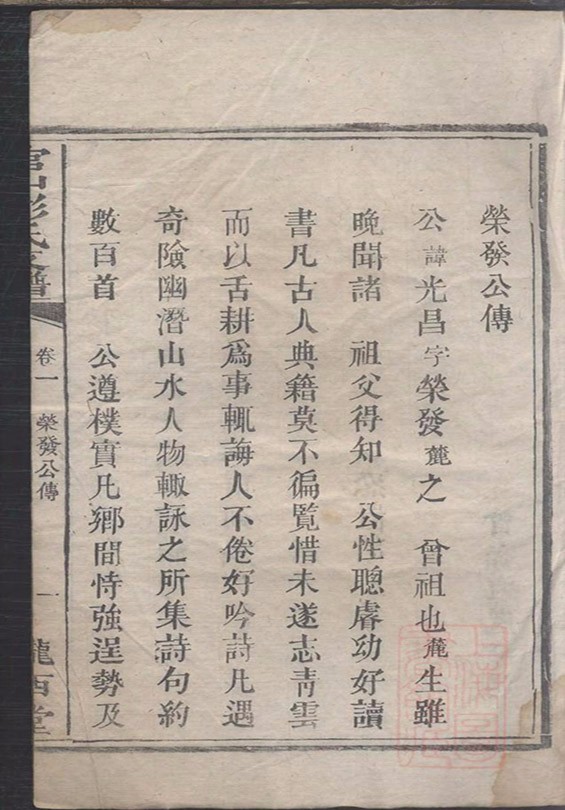 榮發公傳
公諱光昌字榮發蔍之 曾祖也蔍生雖
晚聞諸 祖父得知 公性聰睿幼好讀
書凡古人典籍莫不徧覧惜未遂志靑雲
而以舌耕爲事輒誨人不倦好吟詩凡遇
奇險幽潛山水人物輙詠之所集詩句約
數百首 公遵樸實凡鄉間恃強逞勢及
彭氏支譜
卷一 榮發公傳 一
隴西堂